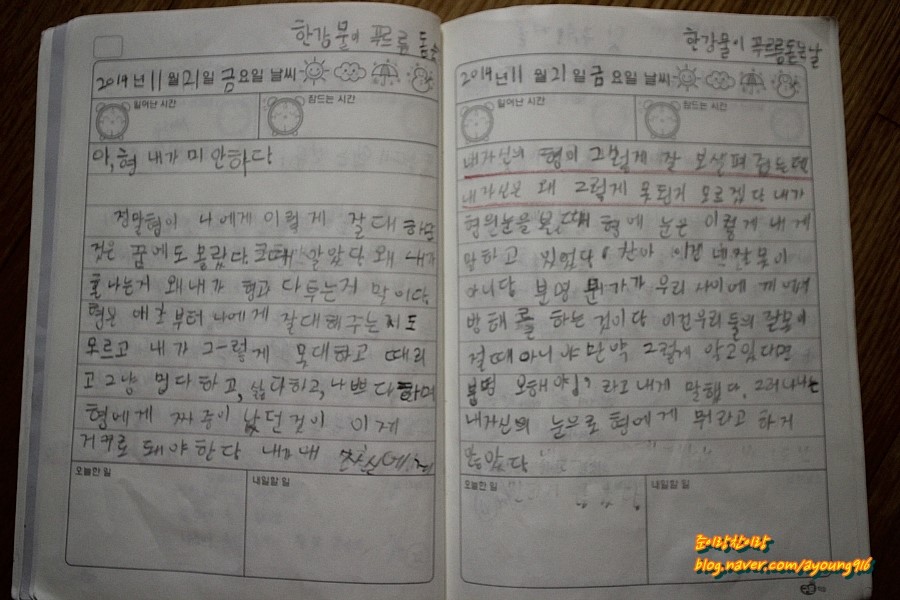 한강물이 푸르름
2014년 11월 21일 금요일 날씨
일어난 시간
잠드는 시간
아, 형 내가 미안하다
정말형이 나에게 이렇게 잘대하는
것은 꿈에도 몰랐다. 그때 알았다 왜 내가
혼나는거 왜내가 형과 다투는거 말이다.
형은 애초부터 나에게 잘대해주는지도
모르고 내가 그-렇게 못대하고 때리
고 그냥 밉다하고, 싫다하고, 나쁘다하며
형에게 짜증이 났던것이 이제
거꾸로 돼야한다 내가내
오늘한 일
내일할 일
한강물이 푸르름돋는날
2014년 11월 21일 금요일 날씨
일어난 시간
잠드는 시간
내자신의 형이 그렇게 잘 보살펴 줬는데
내자신은 왜 그렇게 못된지 모르겠다 내가
형왼눈을 볼때 형에 눈은 이렇게 내게
말하고 있었다. 찬아 이건 네잘못이
아니다 분명 뭔가가 우리 사이에 끼어
방해를 하는 것이다 이건우리 둘의 잘못이
절때아니야 만약 그렇게 알고있다면
분명 오해야! 라고 내게 말했다. 그러나 나는
내자신의 눈으로 형에게 뭐라고 하지
않았다
오늘한 일
내일할 일
준이랑찬이랑
blog.naver.com/ayoung916